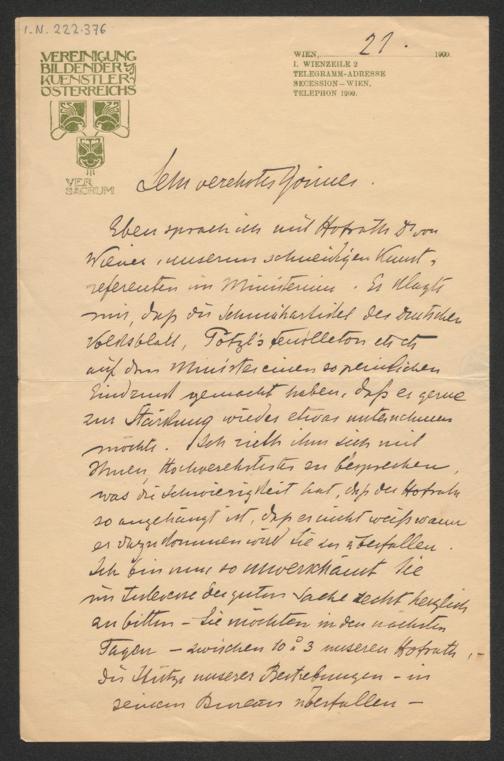 I.N. 222.376
VEREINIGUNG
BILDENDER
KUENSTLER
ÖSTERREICHS
VER
SACRUM
WIEN, 21. 1900.
I. WIENZEILE 2
TELEGRAMM-ADRESSE
SECESSION-WIEN.
TELEPHON 1200.
Sehr verehrter Gönner.
Eben sprach ich mit Hofrath Dr von
Wiener, unserem schneidigen Kunst-
referenten im Ministerium. Er klagte
mir, daß die Schmähartikel des deutschen
Volksblatt, Pötzl's Feuilleton etc etc
auf den Minister einen so peinlichen
Eindruck gemacht haben, daß er gerne
zur Stärkung wieder etwas unternehmen
möchte. Ich rieth ihm sich mit
Ihnen, Hochverehrtester zu besprechen,
was die Schwierigkeit hat, daß der Hofrath
so angehängt ist, daß er nicht weiß wann
er dazu kommen wird Sie zu überfallen.
Ich bin nun so unverschämt Sie
im Interesse der guten Sache recht herzlich
zu bitten – Sie möchten in den nächsten
Tagen – zwischen 10 à 3 unseren Hofrath, –
die Stütze unserer Bestrebungen – in
seinem Bureau überfallen –